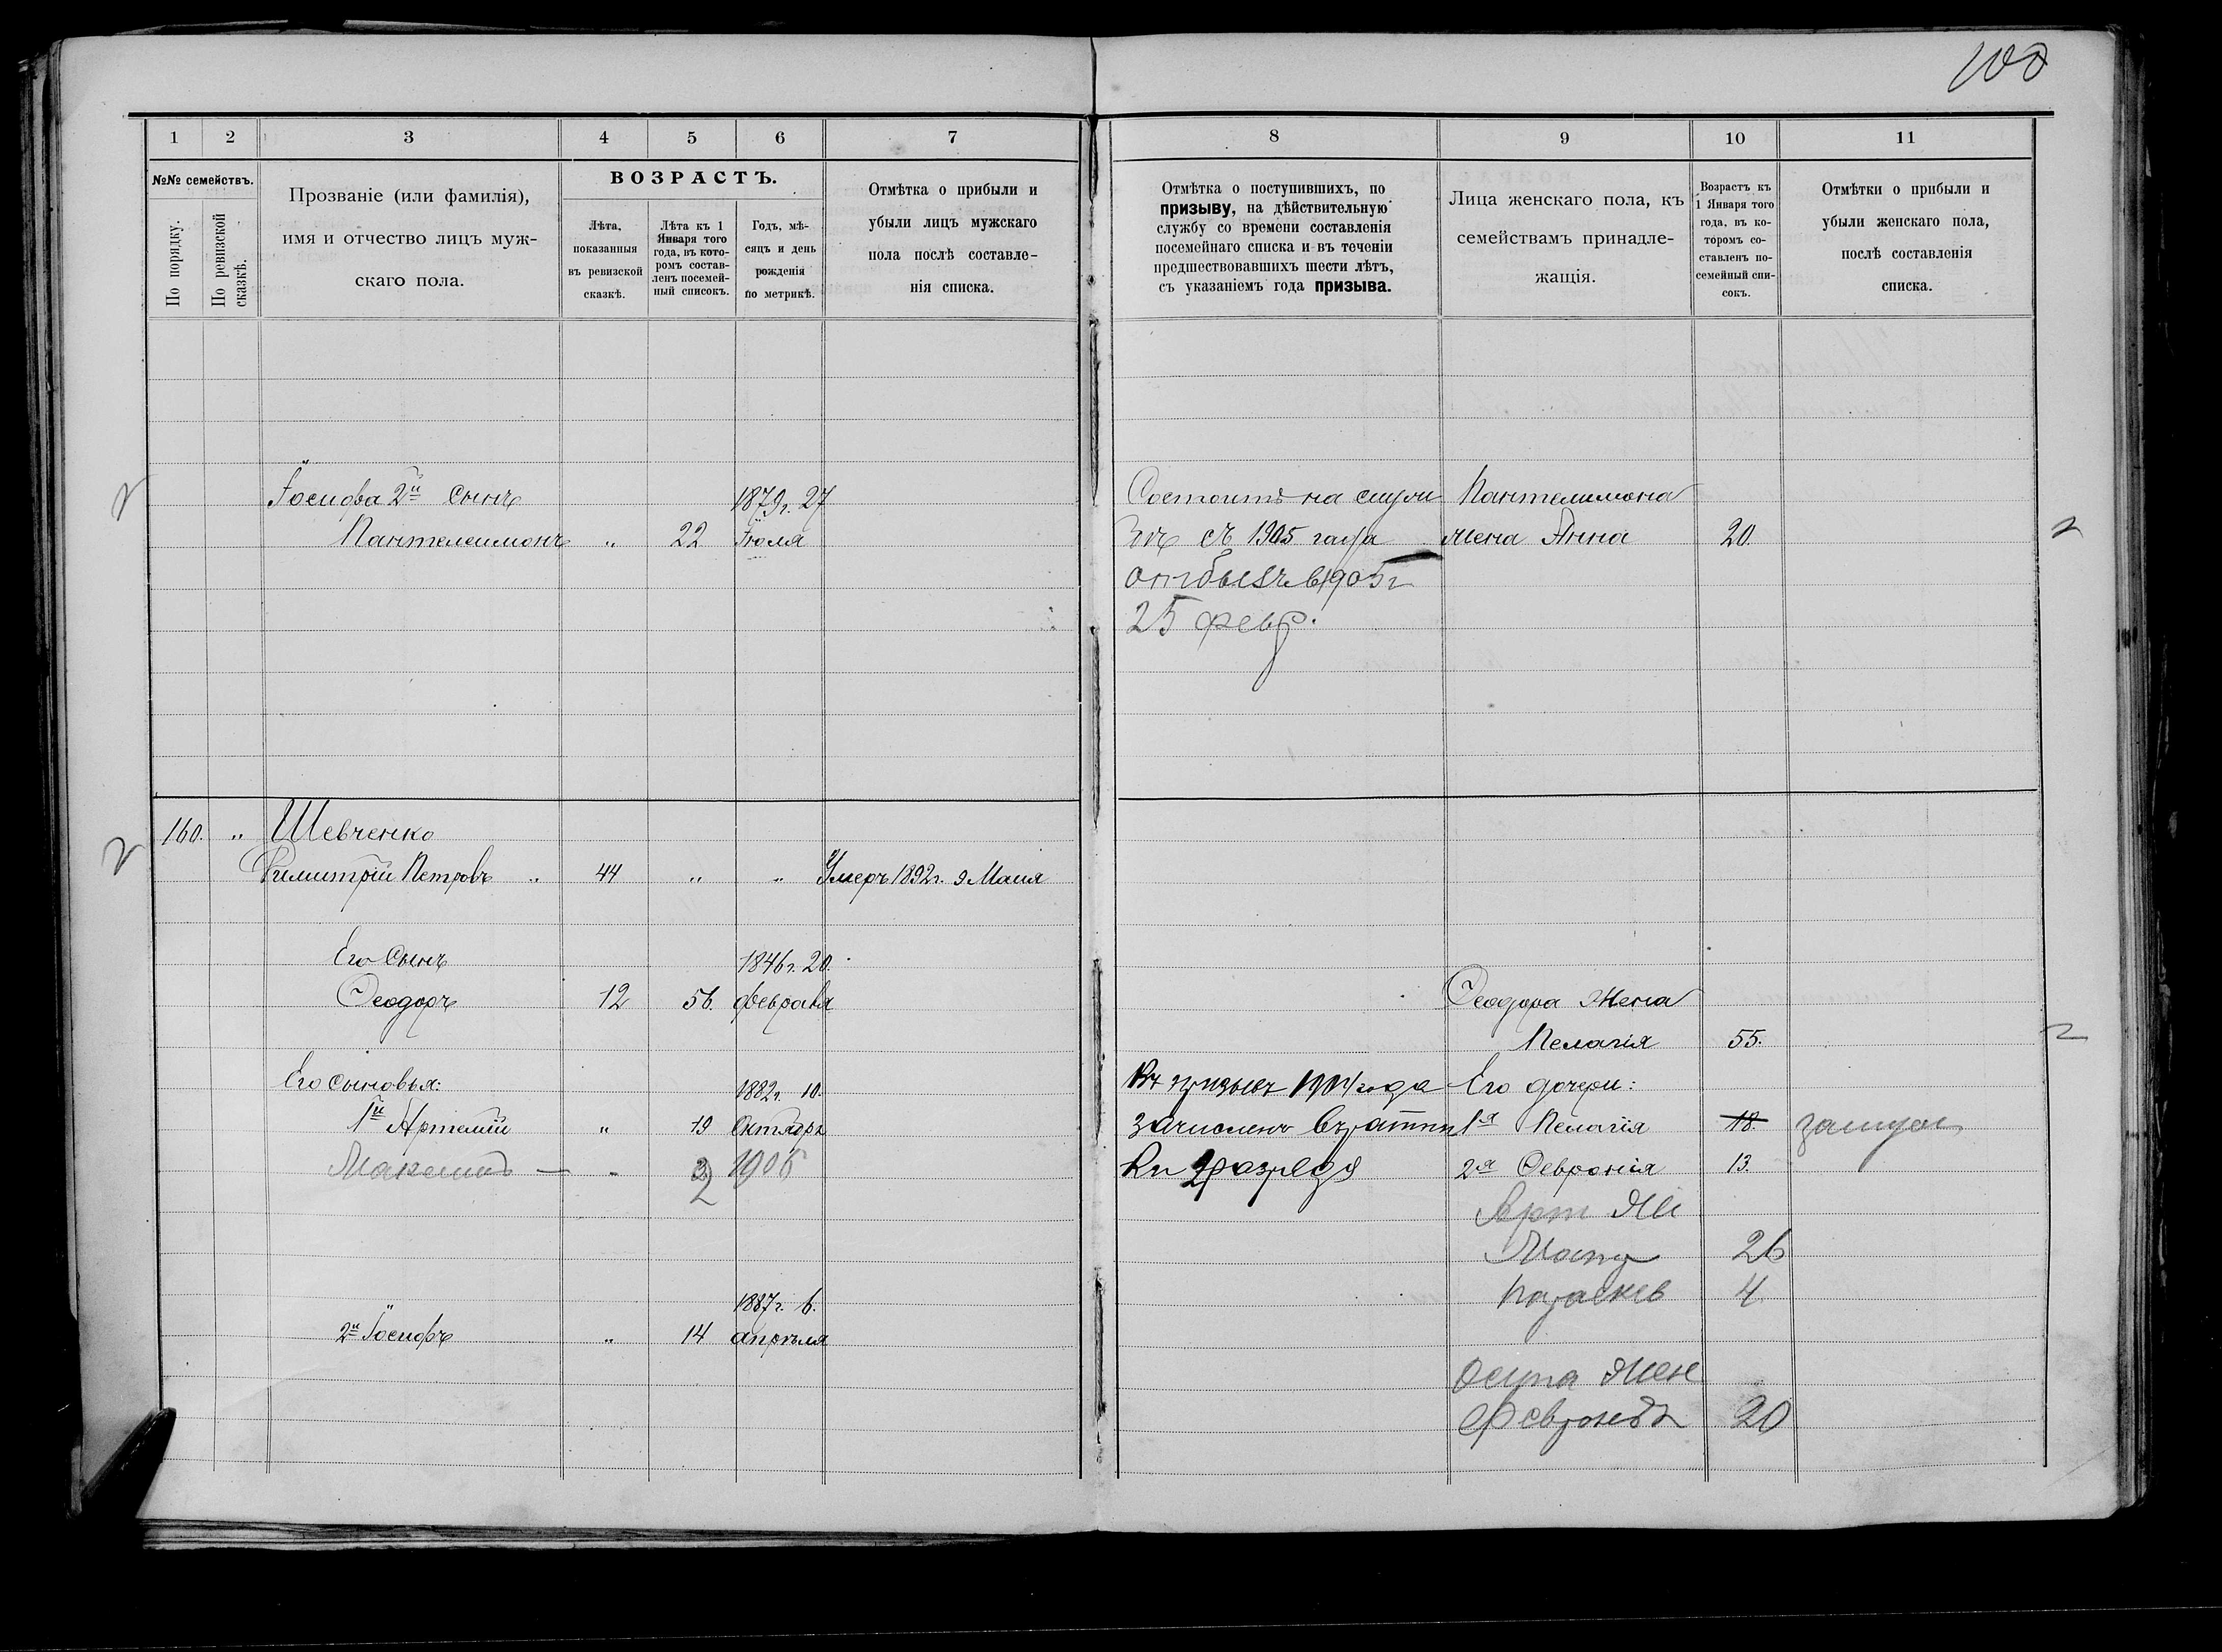 100
1 2 3 4 5 6 7
№№ семействъ.
По порядку.
По ревизской сказкѣ.
Прозваніе (или фамилія),
имя и отчество лицъ муж-
скаго пола.
ВОЗРАСТЪ.
Лѣта,
показанныя
въ ревизской
сказкѣ.
Лѣта къ 1
Января того
года, въ кото-
ромъ состав-
ленъ посемей-
ный списокъ.
Годъ, мѣ-
сяцъ и день
рожденія
по метрикѣ.
Отмѣтка о прибыли и
убыли лицъ мужскаго
пола послѣ составле-
нія списка.
Іосифа 2й сынъ 1879г. 27
Пантелеимонъ „ 22 Іюля
160. „ Шевченко
Димитрій Петровъ „ 44 „ „ Умеръ 1892г. 9 Маія
Его Сынъ 1846г. 20.
Ѳеодоръ 12 56. февраля
Его сыновья: 1882г. 10.
1й Артемій „ 19 Октября
Максимъ — „ 2 1906
1887г. 6.
2й Іосифъ „ 14 апрѣля
8 9 10 11
Отмѣтка о поступившихъ, по
призыву, на дѣйствительную
службу со времени составленія
посемейнаго списка и въ теченіи
предшествовавшихъ шести лѣтъ,
съ указаніемъ года призыва.
Лица женскаго пола, къ
семействамъ принадле-
жащія.
Возрастъ къ
1 Января того
года, въ ко-
торомъ со-
ставленъ по-
семейный спи-
сокъ.
Отмѣтки о прибыли и
убыли женскаго пола,
послѣ составленія
списка.
Состоитъ на служ Пантелимона
бѣ съ 1905 года жена Анна 20.
отбылъ в 1905 г
25 февр.
Ѳеодора Жена
Пелагія 55.
Въ призывъ 1904 года Его дочери:
зачисленъ въ ратни 1я Пелагія 18. замуж
ки 2 разряда 2я Февронія 13.
Арт Же
26
Параскев 4
Осипа Жен
Февронія 20